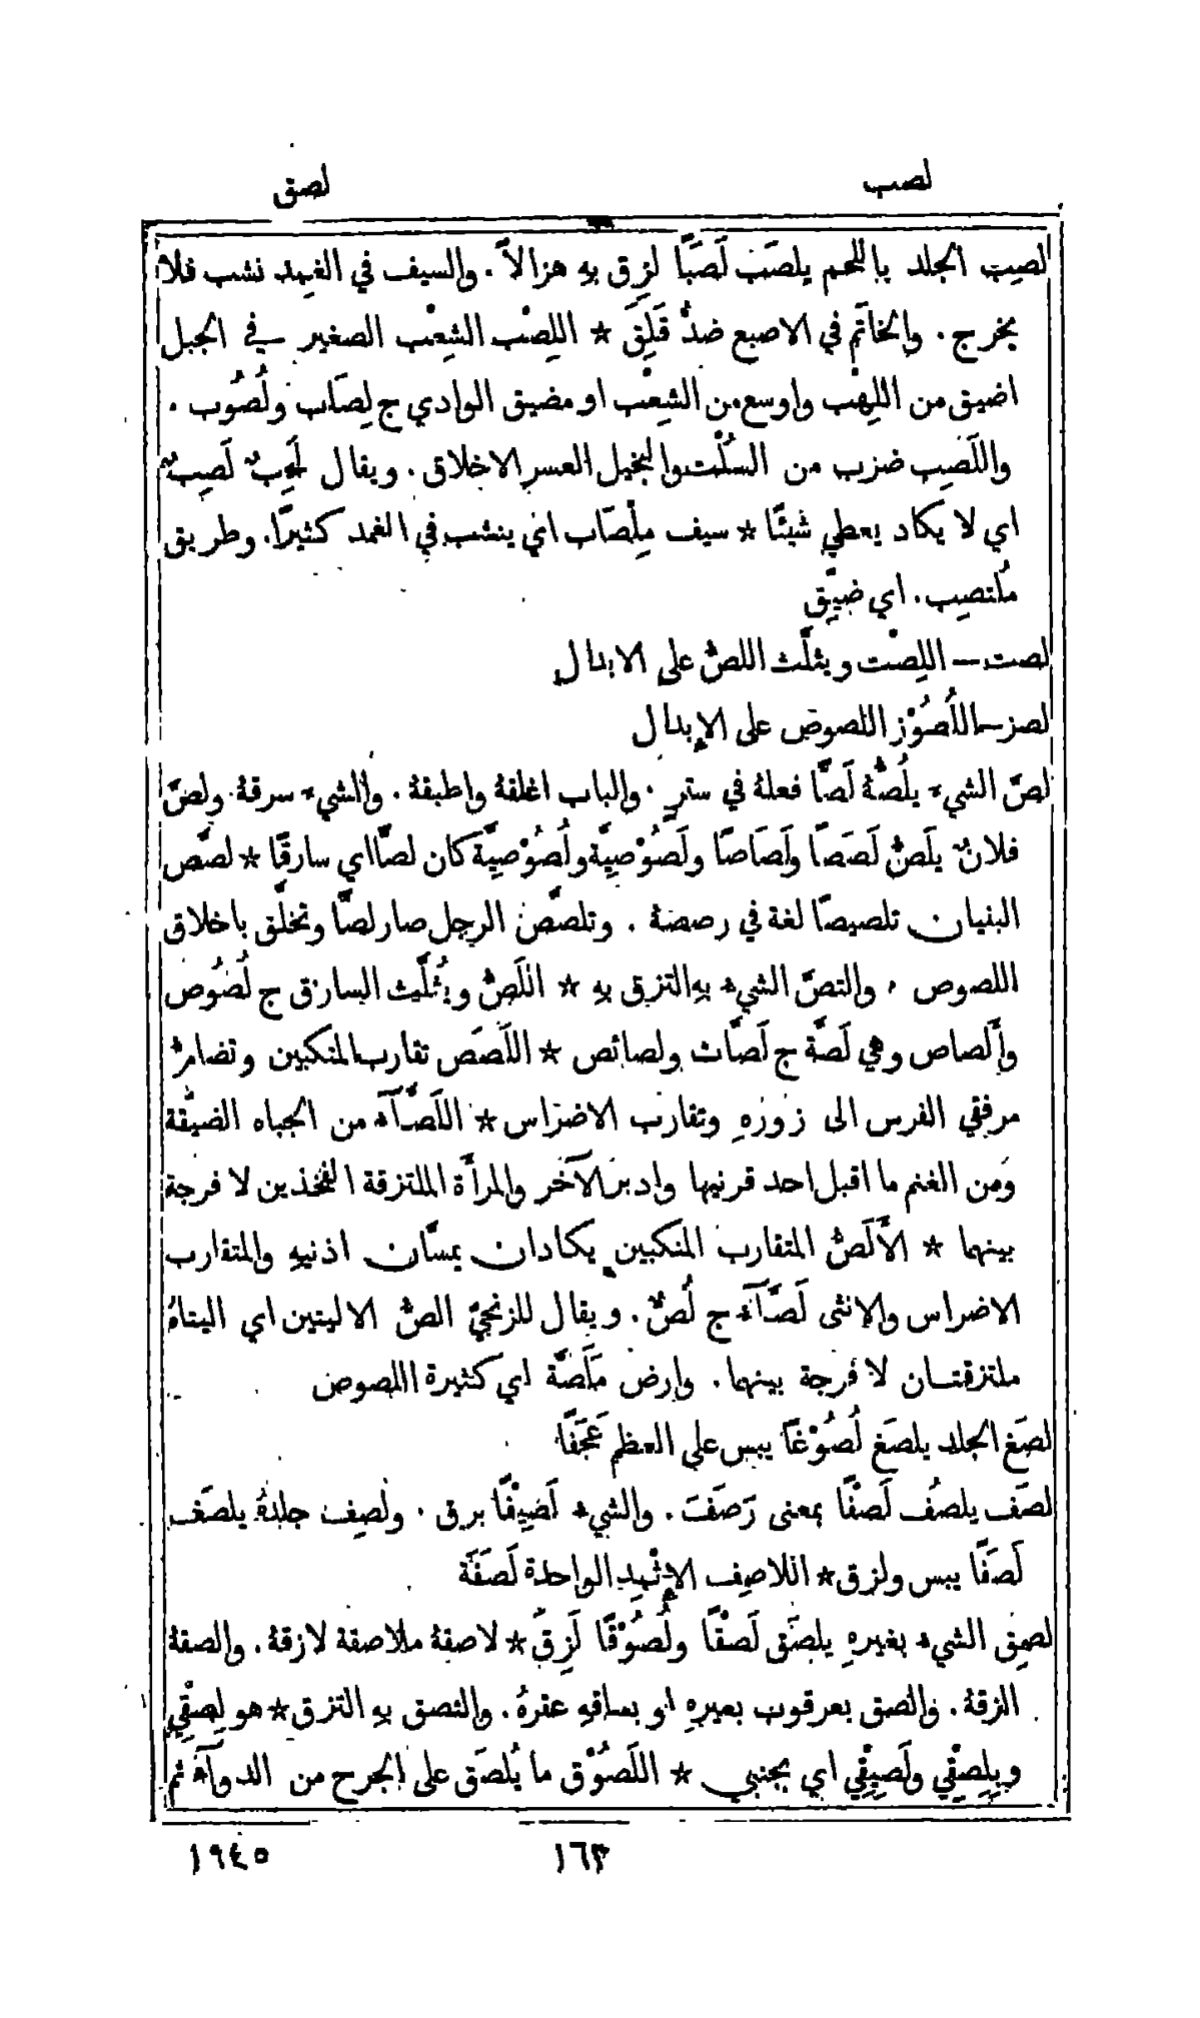 لصب
لصق
لصِب الجلد باللحم يلصَب لَصَبًا لزِق به هزالاً . والسيف في الغمد نشب فلا
يخرج . والخاتَم في الاصبع ضدُّ قَلِقَ * اللِصْب الشِعْب الصغير في الجبل
اضيق من اللِهْب واوسع من الشِعْب او مضيق الوادي ج لِصَاب ولُصُوب .
واللَصِب ضرب من السُلْت والبخيل العسر الاخلاق . ويقال لَحِبٌ لَصِبٌ
اي لا يكاد يعطي شيئًا * سيف مِلْصَاب اي ينشب في الغمد كثيرًا . وطريق
مُلتصِب . اي ضيّق
لصت — اللِصْت ويثلَّث اللصُّ على الابدال
لصز — اللُصُوْز اللصوص على الإبدال
لصّ الشيء يلُصُّهُ لَصًّا فعلهُ في سترٍ . والباب اغلقهُ واطبقهُ . والشيء سرقهُ . ولصّ
فلانٌ يلَصُّ لَصَصًا ولَصَاصًا ولَصُوْصِيَّة ولُصُوْصِيَّة كان لصًّا اي سارقًا * لصَّص
البنيان تلصيصًا لغة في رصصهُ . وتلصَّص الرجل صار لصًّا وتخلَّق باخلاق
اللصوص . والتصّ الشيء بهِ التزق بهِ * اللَصُّ ويُثلَّث السارق ج لُصُوص
وأَلصاص وهي لَصَّة ج لَصَّات ولصائص * اللَصَص تقارب المنكبين وتضامُّ
مرفقي الفرس الى زورهِ وتقارب الاضراس * اللَصَّآء من الجباه الضيّقة
ومن الغنم ما اقبل احد قرنيها وادبر الآخر والمرأَة الملتزقة الفخذين لا فرجة
بينهما * الأَلَصُّ المتقارب المنكبين يكادان يمسَّان اذنيهِ والمتقارب
الاضراس والانثى لَصَّآء ج لُصٌّ . ويقال للزنجيّ الصُّ الاليتين اي اليتاهُ
ملتزقتان لا فرجة بينهما . وارض مَلَصَّة اي كثيرة اللصوص
لصَغ الجلد يلصَغ لُصُوْغًا يبس على العظم عَجَفًا
لصَف يلصُف لَصْفًا بمعنى رَصَفَ . والشيء لَصِيْفًا برق . ولصِف جلدهُ يلصَف
لَصَفًا يبس ولزق * اللاصِف الإِثْمِد الواحدة لَصَفَة
لصِق الشيء بغيرهِ يلصَق لَصْقًا ولُصُوْقًا لَزِقَ * لاصقهُ ملاصقة لازقهُ . والصقهُ
الزقهُ . والصق بعرقوب بعيرهِ او بساقهِ عقرهُ . والتصق بهِ التزق * هو لِصْقِي
وبِلِصْقِي ولَصِيْقِي اي بجنبي * اللَصُوْق ما يُلصَق على الجرح من الدوآء ثم
١٦٣
١٩٤٥